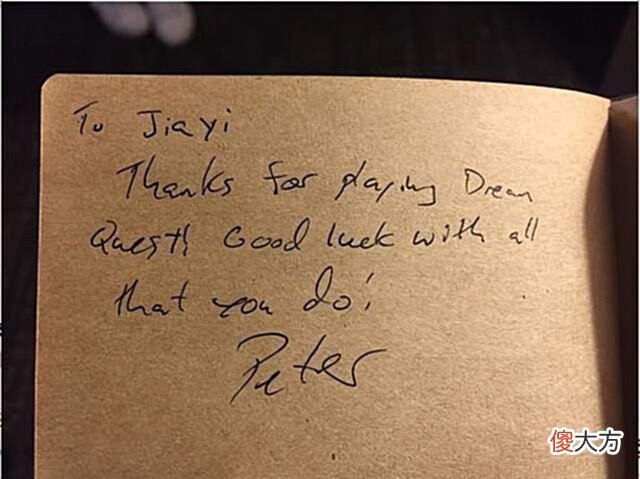 To Jiayi
Thanks for playing Dream
Quest! Good luck with all
that you do!
Peter
傻大方